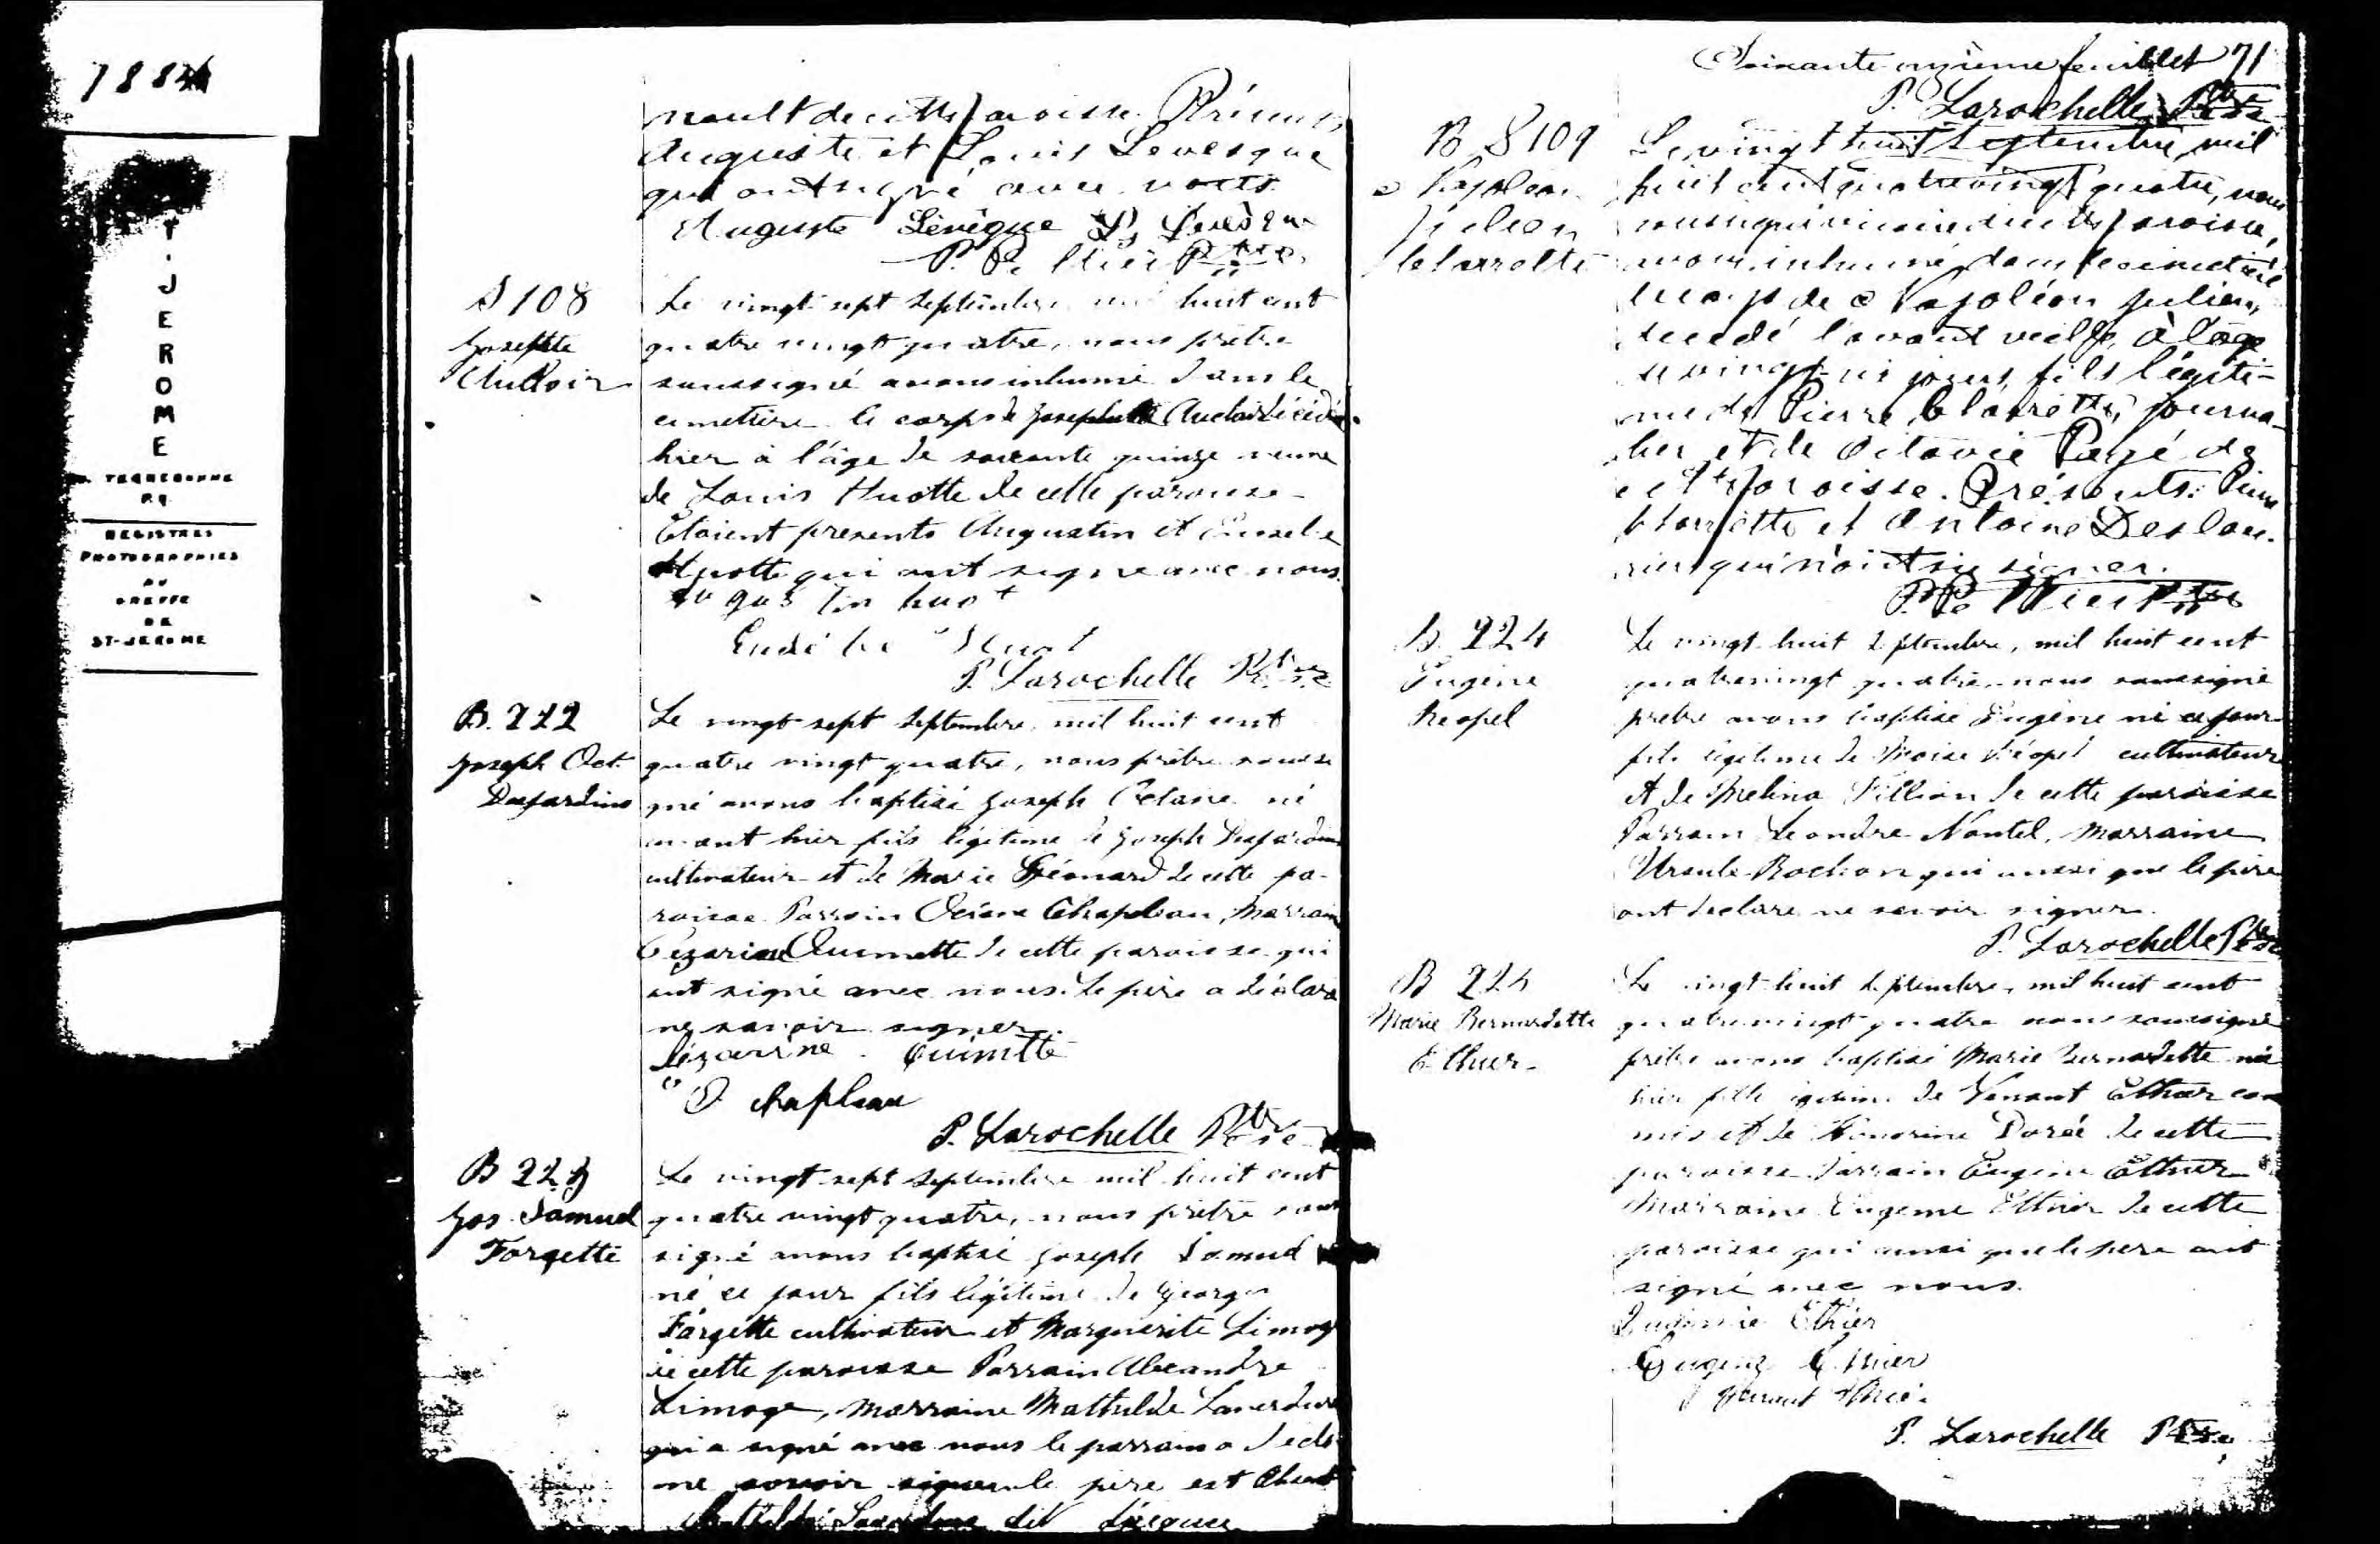 1884
T.
J
E
R
O
M
E
TERREBONNE
P.Q.
REGISTRES
PHOTOGRAPHIES
AU
GREFFE
DE
ST-JEROME
nault de cette paroisse. Présents
Auguste et Louis Levesque
qui ont signé avec nous.
Auguste Lévêque L. Levèsque
P. Peltier Ptre
S 108
Josephte
Auclair
Le vingt sept Septembre mil huit cent
quatre vingt quatre, nous prêtre
soussigné avons inhumé dans le
cimetière le corps de Josephte Auclair décédée
hier à l'âge de soixante quinze veuve
de Louis Huotte de cette paroisse
Etaient presents Augustin et Eusebe
Huotte qui ont signe avec nous.
huot
Huot
P. Larochelle Ptre
B. 222
Joseph Oct.
Desjardins
Le vingt sept Septembre mil huit cent
quatre vingt quatre, nous prêtre soussi
gné avons baptisé Joseph Octave né
avant hier fils légitime de Joseph Desjardins
cultivateur et de Marie Léonard de cette pa-
roisse Parrain Chapleau, Marraine
Cézarine Ouimette de cette paroisse qui
ont signé avec nous. Le père a déclaré
ne savoir signer.
Cézarine Ouimette
O chapleau
P. Larochelle Ptre
B 223
Jos. Samuel
Forgette
Le vingt sept Septembre mil huit cent
quatre vingt quatre, nous prêtre sous
signé avons baptisé Joseph Samuel
né ce jour fils légitime de George
Forgette cultivateur et Marguerite Limoge
de cette paroisse Parrain Alexandre
Limoge, Marraine Mathilde Laverdure
qui a signé avec nous le parrain a décla
ne savoir signer le père est absent
Mathilde Laverdure dit
Soixante onzième feuillet 71
P. Larochelle Ptre
B S 109
Napoléon
Julien
Clarrotte
Le vingt huit Septembre mil
huit cent quatre vingt quatre, nous
soussigné vicaire de cette paroisse,
avons inhumé dans le cimetière
le corps de Napoléon Julien,
décédé l'avant veille, à l'âge
de vingt-six jours, fils légiti-
me de Pierre Clarrotte, journa-
lier et de Octavie Pagé de
cette paroisse. Présents: Pierre
Clarrotte et Antoine Deslau-
riers qui n'ont su signer.
P. Peltier Ptre
B. 224
Eugène
Reopel
Le vingt huit Septembre, mil huit cent
quatre vingt quatre, nous soussigné
prêtre avons baptisé Eugène né ce jour
fils légitime de Moise Réopel cultivateur
et de Melina Fillion de cette paroisse
Parrain Leandre Nantel, Marraine
Ursule Rochon qui aussi que le père
ont declare ne savoir signer.
P. Larochelle Ptre
B 225
Marie Bernardette
Ethier
Le vingt huit Septembre, mil huit cent
quatre vingt quatre nous soussigné
prêtre avons baptisé Marie Bernardette née
hier fille légitime de Venant Ethier com
mis et de Honorine Doré de cette
paroisse Parrain Eugène Ethier
Marraine Eugenie Ethier de cette
paroisse qui ainsi que le père ont
signé avec nous.
Eugénie Ethier
Eugène Ethier
Venant Ethier
P. Larochelle Ptre